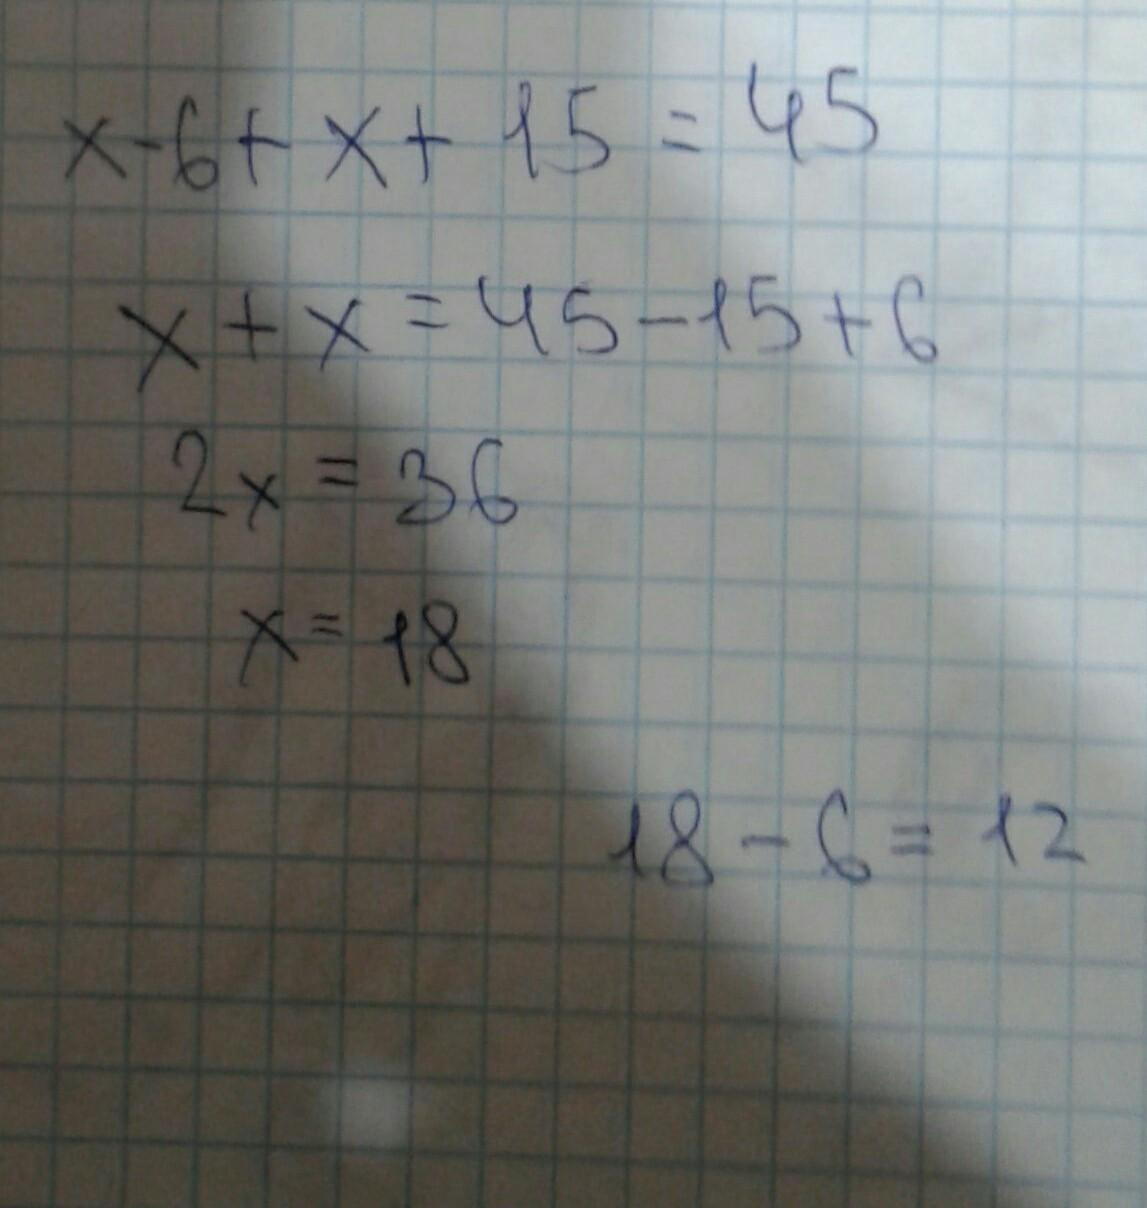 x-6+x+15=45
x+x=45-15+6
2x=36
x=18
18-6=12